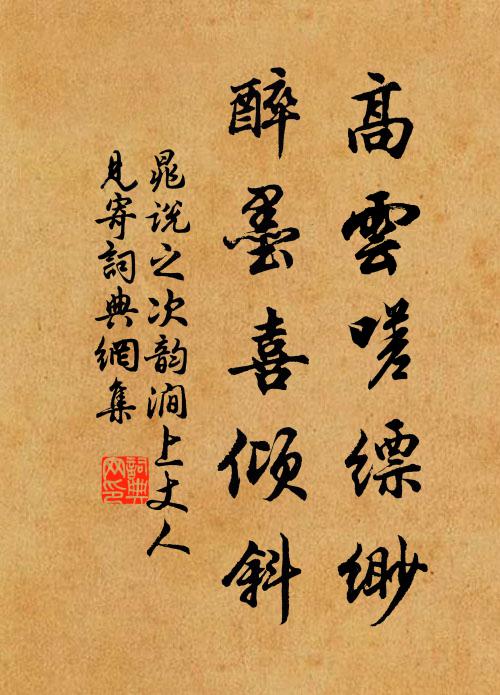 高雲嗟縹緲
醉墨喜傾斜
晁說之次韵澗上丈人
見寄詞典網集
詞典
网印